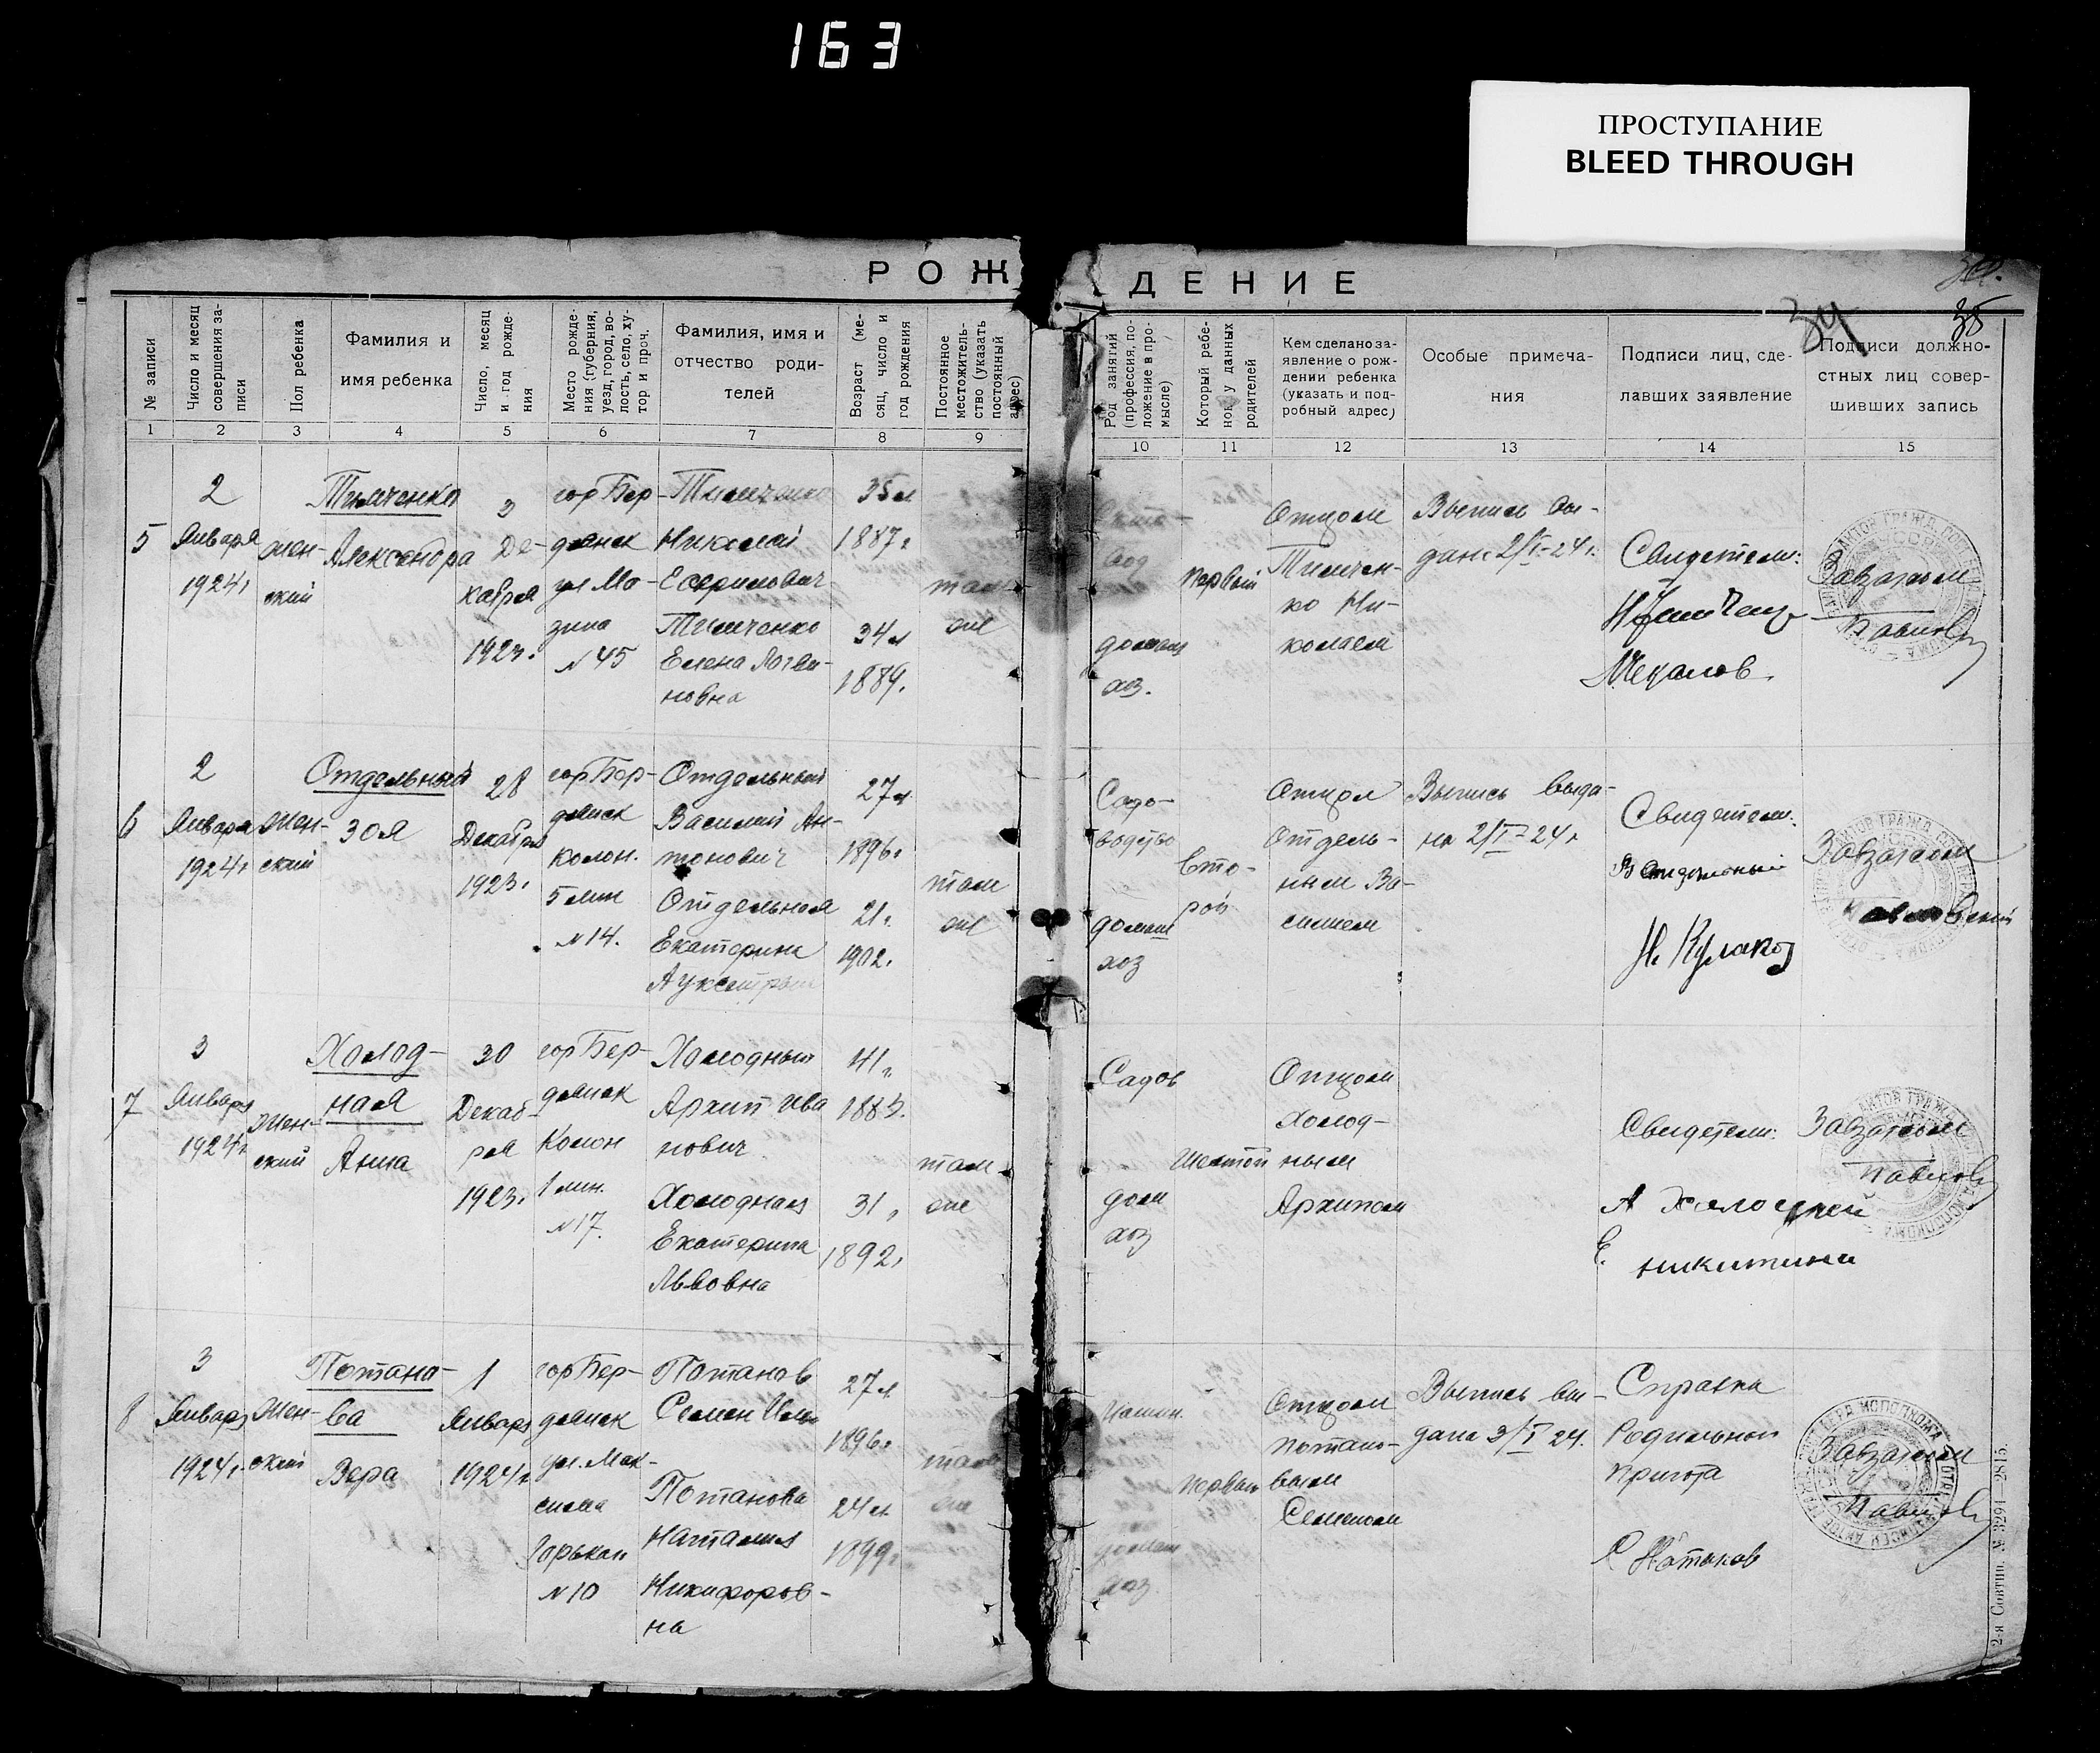 163
ПРОСТУПАНИЕ
BLEED THROUGH
РОЖДЕНИЕ
34
35
№ записи
Число и месяц совершения записи
Пол ребенка
Фамилия и
имя ребенка
Число, месяц и год рождения
Место рождения (губерния, уезд, город, волость, село, хутор и проч.
Фамилия, имя и
отчество роди-
телей
Возраст (месяц, число и год рождения
Постоянное местожительство (указать постоянный адрес)
Род занятий (профессия, положение в промысле)
Который ребенок у данных родителей
Кем сделано за-
явление о рож-
дении ребенка
(указать и под-
робный адрес)
Особые примеча-
ния
Подписи лиц, сде-
лавших заявление
Подписи должно-
стных лиц совер-
шивших запись
1 2 3 4 5 6 7 8 9 10 11 12 13 14 15
5
2
Января
1924г
жен-
ский
Тимченко
Александра
3
Де-
кабря
1923.
гор Бер-
дянск
ул Ма-
зина
№45
Тимченко
Николай
Тимченко
Елена Логви-
новна
35л
1887г
34л
1889.
там
же
домаш
хоз.
первый
Отцом
Тимчен-
ко Ни-
колаем
Выпись вы-
дана 2/I-24г.
Свидетели:
Завзагсом
Павлов
6
2
Января
1924г
Жен-
ский
Отдельный
Зоя
28
Декабря
1923.
гор Бер-
дянск
колон.
5 лин
№14.
Отдельный
Василий Ан-
тонович
Отдельная
Екатерина
27л
1896г
21г.
1902.
там
же
Садо-
водство
домаш
хоз
Вто-
рой
Отцом
Отдель-
ным Ва-
силием
Выпись выда-
на 2/I-24г
Свидетели:
В Отдельный
Н. Кулаков
Завзагсом
7
3
Января
1924г
Жен-
ский
Холод-
ная
Анна
30
Декаб-
ря
1923.
гор Бер-
дянск
Колон
1 лин.
№17.
Холодный
Архип Ива
нович
Холодная
Екатерина
Львовна
41
1883.
31
1892.
там
же
Садов
дом
хоз
Шестой
Отцом
Холод-
ным
Архипом
Свидетели:
Никитина
Завзагсом
Павлов
8
3
Января
1924г.
Жен-
ский
Потапо-
ва
Вера
1
Января
1924г
гор Бер-
дянск
ул. Мак-
сима
Горьког
№10
Потапов
Семен
Потапова
Наталия
Никифоров-
на
27л
1896г
24л
1899.
там
же
домаш
хоз.
первый
Отцом
Потапо-
вым
Семеном
Выпись вы-
дана 3/I 24.
Справка
Родильного
Приюта
Завзагсом
Павлов
2-я Совтип. № 3294—2815.